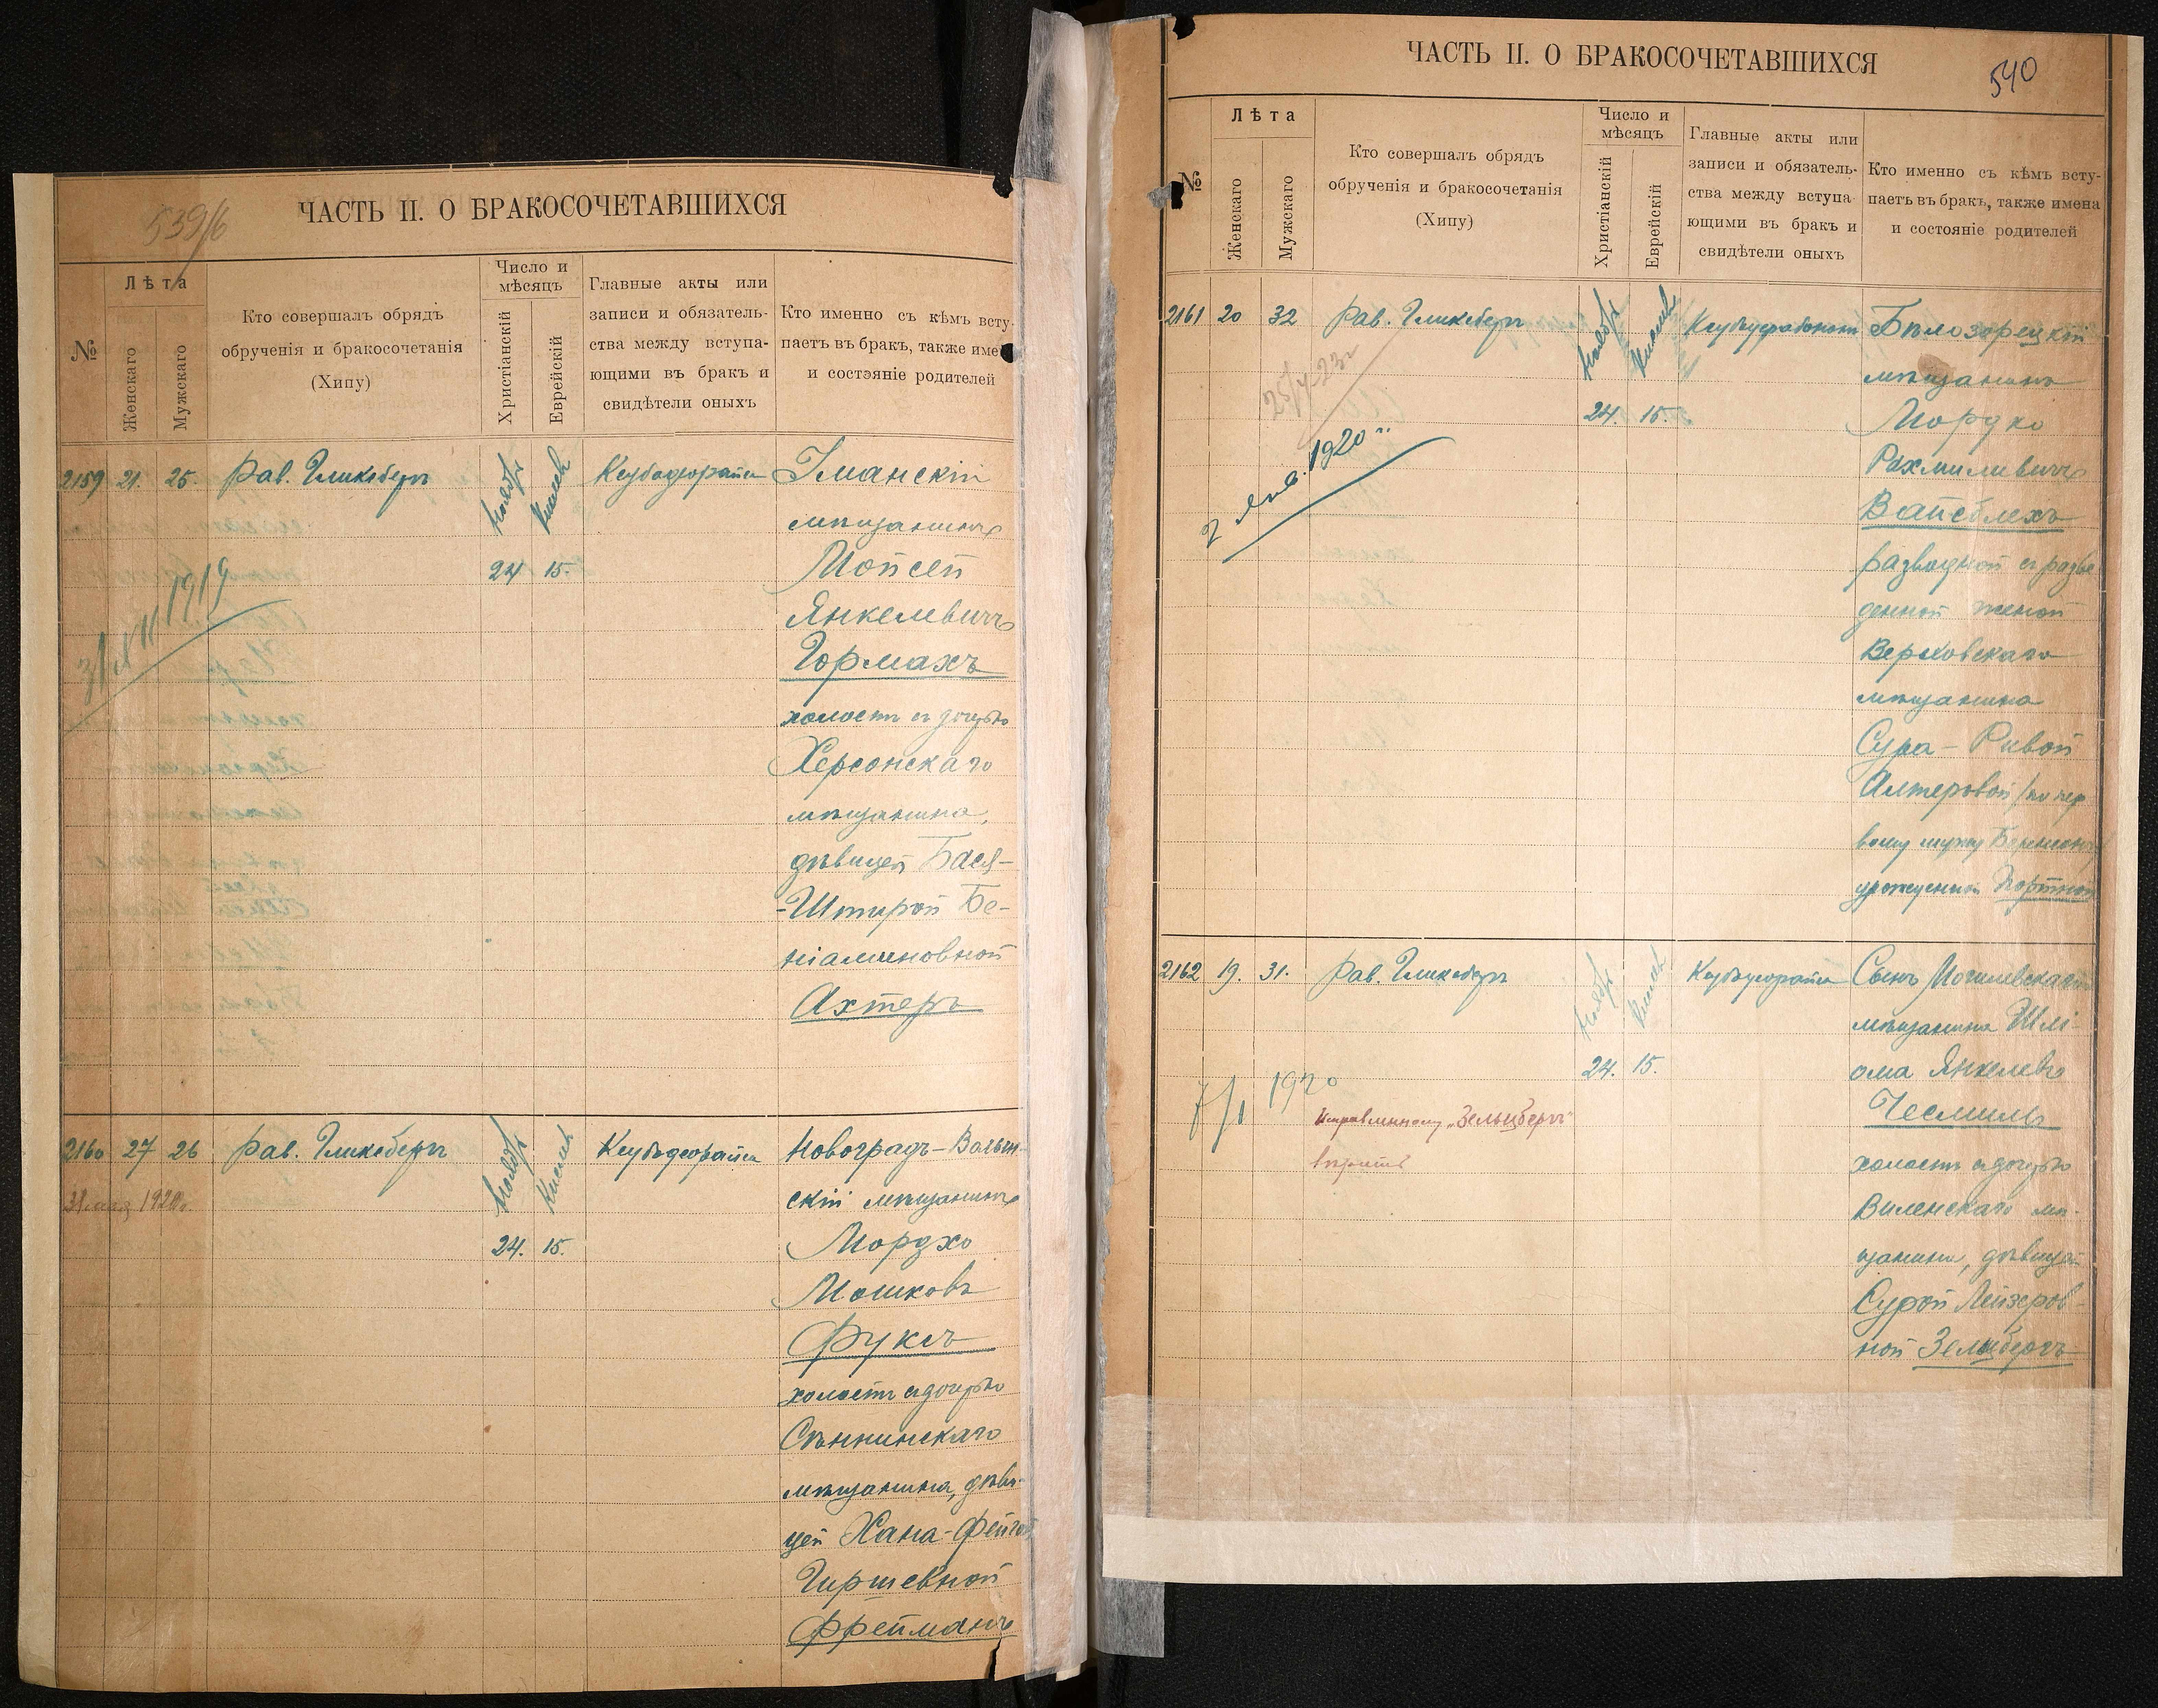 539/б
ЧАСТЬ II. О БРАКОСОЧЕТАВШИХСЯ
№
Лѣта
Женскаго
Мужскаго
Кто совершалъ обрядъ
обрученія и бракосочетанія
(Хипу)
Число и
мѣсяцъ
Христіанскій
Еврейскій
Главные акты или
записи и обязатель-
ства между вступа-
ющими въ бракъ и
свидѣтели оныхъ
Кто именно съ кѣмъ всту-
паетъ въ бракъ, также име
и состояніе родителей
2159 21. 25. Рав. Гликсбергъ Ноябрь Кислев
24 15.
31/XII 1919
Уманскій
мѣщанинъ
Мойсей
Янкелевичъ
Гормахъ
холостъ съ дочерью
Херсонскаго
мѣщанина,
дѣвицей Бася-
-Штирой Бе-
ніаминовной
Ахтеръ
2160 27 26 Рав. Гликсбергъ Ноябрь Кислев
31 мая 1920г.
24. 15.
Новоградъ-Волын-
скій мѣщанинъ
Мордхо
Мошковъ
Фуксъ
холостъ съ дочерью
Сѣннинскаго
мѣщанина, дѣви-
цей Хана-Фейгой
Гиршевной
Фрейманъ
ЧАСТЬ II. О БРАКОСОЧЕТАВШИХСЯ
540
№
Лѣта
Женскаго
Мужскаго
Кто совершалъ обрядъ
обрученія и бракосочетанія
(Хипу)
Число и
мѣсяцъ
Христіанскій
Еврейскій
Главные акты или
записи и обязатель-
ства между вступа
ющими въ бракъ и
свидѣтели оныхъ
Кто именно съ кѣмъ всту-
паетъ въ бракъ, также имена
и состояніе родителей
2161 20 32 Рав. Гликсбергъ Ноябрь Кислев
24. 15.
2 Янв. 1920 г.
Бѣлозорецкій
мѣщанинъ
Мордко
Рахмилевичъ
Вайсблехъ
разводной съ разве
денной женой
Верховскаго
мѣщанина
Сура-Ривой
Алтеровой /по пер
вому мужу
урожденной Портной
2162 19. 31. Рав. Гликсбергъ Ноябрь Кислев
24. 15.
7/I 1920
Исправленному „Зельцбергъ"
вѣрить
Сынъ Могилевскаго
мѣщанина Шлі-
ома Янкелевъ
Чесмиль
холостъ съ дочерью
Виленскаго мѣ-
щанина, дѣвицей
Сурой Лейзеров-
ной Зельцбергъ